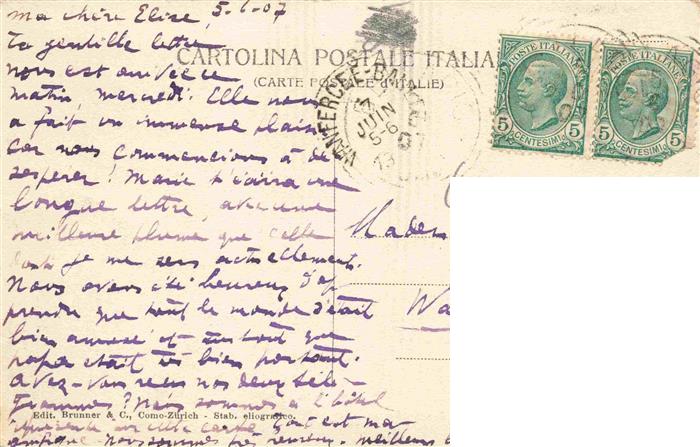 ma chère Elise, 5-6-07
Ta gentille lettre
nous est arrivée ce
matin, mercredi. Elle nous
a fait un immense plaisir
car nous commencions à dé-
sesperer! Marie t'écrira une
longue lettre, avec une
meilleure plume que celle
dont je me sers actuellement.
Nous avons été heureux d'ap
prendre que tout le monde s'était
bien amusé et surtout que
papa était bien portant.
Avez-vous reçu nos deux télé-
grammes? Nous sommes à l'hôtel
cette carte. Tout est ma-
gnifique. Nous sommes très heureux. Meilleurs
CARTOLINA POSTALE ITALIANA
(CARTE POSTALE D'ITALIE)
WANFERCÉE-BAULET
JUIN
5-6
07
13
POSTE ITALIANE
5 5
CENTESIMI
POSTE ITALIANE
5 5
CENTESIMI
Madem
Wa
Edit. Brunner & C., Como-Zürich - Stab. eliografico.